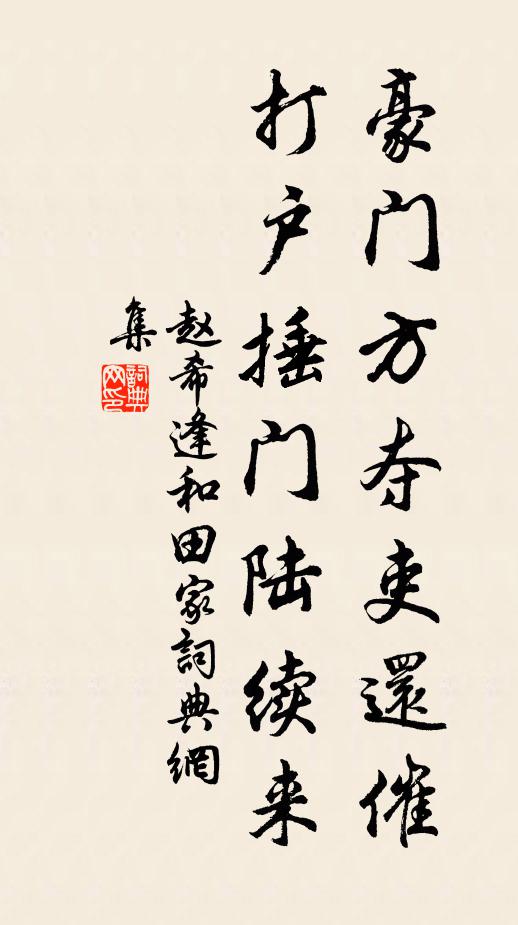 豪门方夺吏還催
打户捶门陆续来
赵希逢和田家詞典網
集
詞典
网印